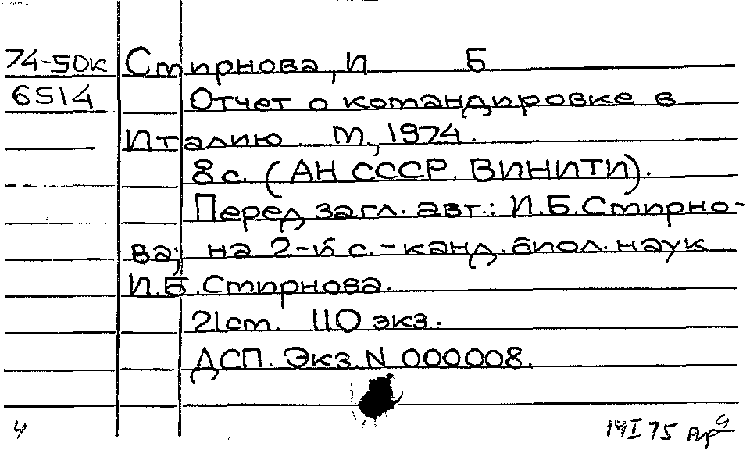 74-50к Смирнова, И Б
6514 Отчет о командировке в
Италию. М., 1974.
8 с. (АН СССР. ВИНИТИ).
Перед загл. авт.: И.Б.Смирно-
ва; на 2-й с. - канд. биол. наук
И.Б.Смирнова.
21 cm. 110 экз.
ДСП. Экз. N 000008.
4 14I75